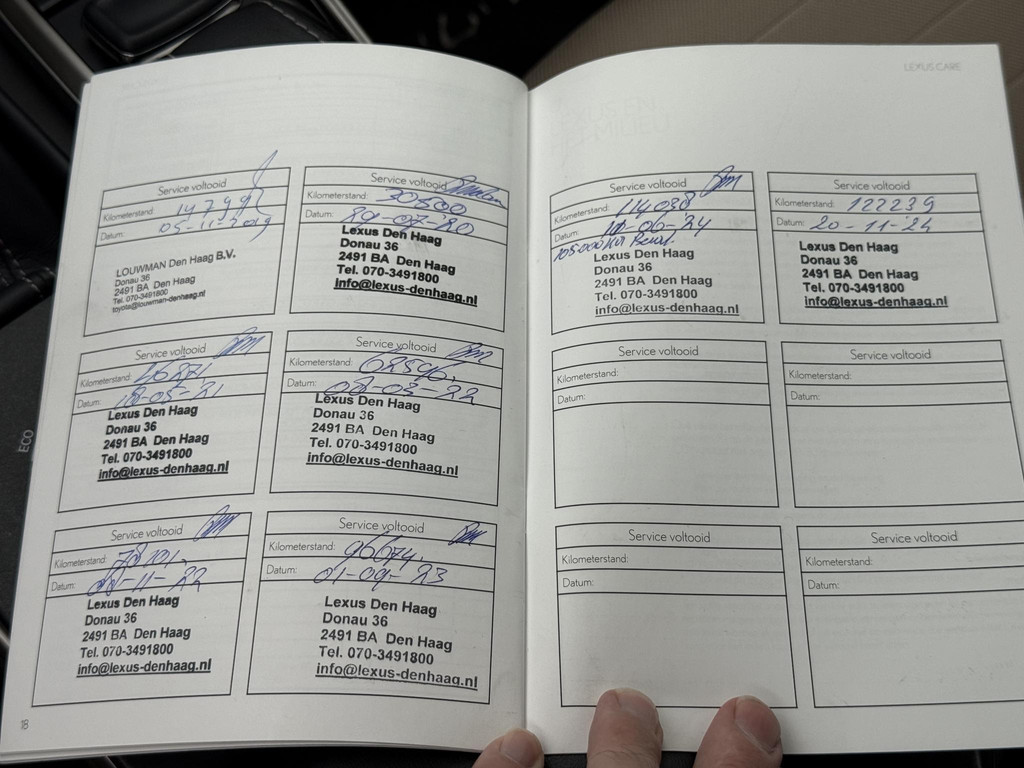 LEXUS CARE
Service voltooid
Kilometerstand: 14799
Datum: 05-11-2019
LOUWMAN Den Haag B.V.
Donau 36
2491 BA Den Haag
Tel. 070-3491800
toyota@louwman-denhaag.nl
Service voltooid
Kilometerstand: 30500
Datum: -07-'20
Lexus Den Haag
Donau 36
2491 BA Den Haag
Tel. 070-3491800
info@lexus-denhaag.nl
Service voltooid
Kilometerstand: 46871
Datum: 18-05-21
Lexus Den Haag
Donau 36
2491 BA Den Haag
Tel. 070-3491800
info@lexus-denhaag.nl
Service voltooid
Kilometerstand: 62596,
Datum: 08-03-22
Lexus Den Haag
Donau 36
2491 BA Den Haag
Tel. 070-3491800
info@lexus-denhaag.nl
Service voltooid
Kilometerstand: 78101,
Datum: -11-22
Lexus Den Haag
Donau 36
2491 BA Den Haag
Tel. 070-3491800
info@lexus-denhaag.nl
Service voltooid
Kilometerstand: 96674,
Datum: 01-09-23
Lexus Den Haag
Donau 36
2491 BA Den Haag
Tel. 070-3491800
info@lexus-denhaag.nl
18
Service voltooid
Kilometerstand: 114038
Datum: 10-06-'24
105000 KM
Lexus Den Haag
Donau 36
2491 BA Den Haag
Tel. 070-3491800
info@lexus-denhaag.nl
Service voltooid
Kilometerstand: 122239
Datum: 20-11-'24
Lexus Den Haag
Donau 36
2491 BA Den Haag
Tel. 070-3491800
info@lexus-denhaag.nl
Service voltooid
Kilometerstand:
Datum:
Service voltooid
Kilometerstand:
Datum:
Service voltooid
Kilometerstand:
Datum:
Service voltooid
Kilometerstand:
Datum:
ECO